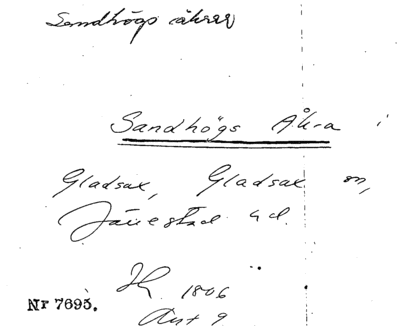 Sandhögs åkrar
Sandhögs Åkra i
Gladsax, Gladsax sn,
Järrestad hd.
1806
Nr 7695.
Akt 9